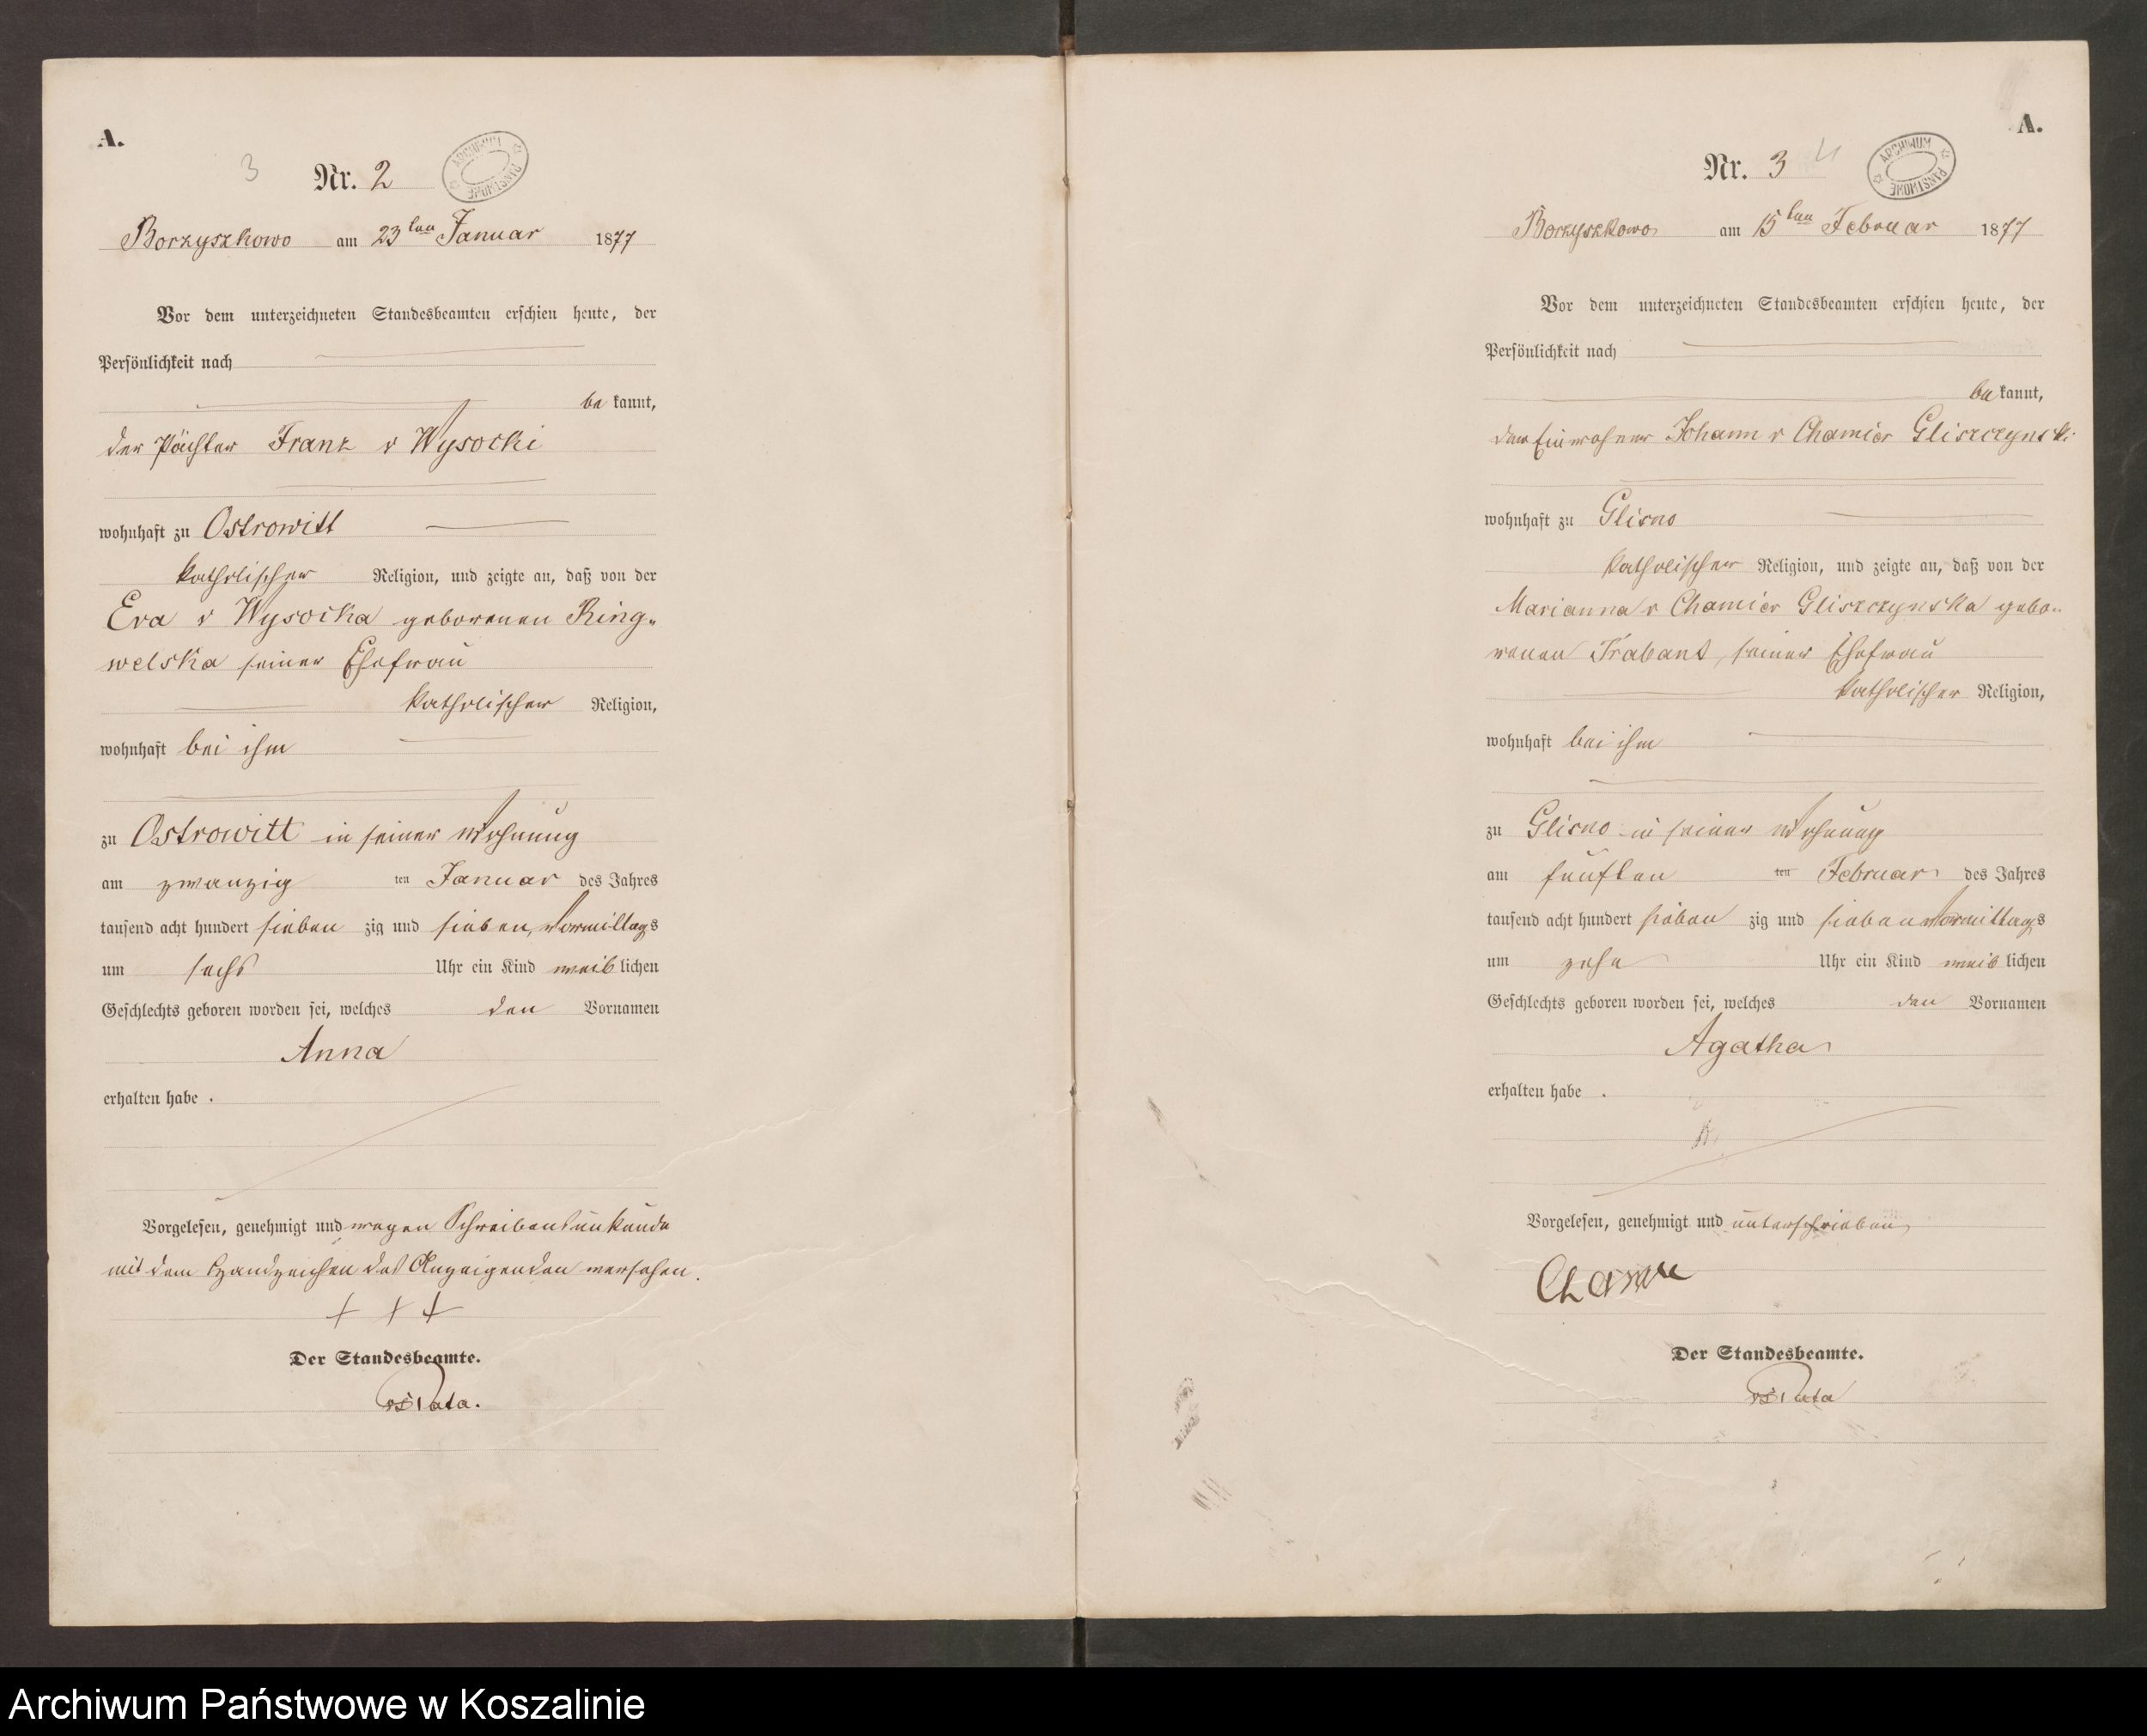 A.
3
Nr. 2
ARCHIWUM PAŃSTWOWE
Borzyszkowo am 23ten Januar 1877
Vor dem unterzeichneten Standesbeamten erschien heute, der
Persönlichkeit nach
be kannt,
der Pächter Franz v Wysocki
wohnhaft zu Ostrowitt
katholischer Religion, und zeigte an, daß von der
Eva v Wysocka geborenen Ring-
welska seiner Ehefrau
katholischer Religion,
wohnhaft bei ihm
zu Ostrowitt in seiner Wohnung
am zwanzig ten Januar des Jahres
tausend acht hundert sieben zig und sieben, Vormittags
um sechs Uhr ein Kind weib lichen
Geschlechts geboren worden sei, welches den Vornamen
Anna
erhalten habe .
Vorgelesen, genehmigt und wegen Schreibensunkunde
mit dem Handzeichen des Anzeigenden versehen.
+ + +
Der Standesbeamte.
A.
Nr. 3 4
ARCHIWUM PAŃSTWOWE
Borzyszkowo am 15ten Februar 1877
Vor dem unterzeichneten Standesbeamten erschien heute, der
Persönlichkeit nach
be kannt,
der Einwohner Johann v Chamier Gliszczynski
wohnhaft zu Glisno
katholischer Religion, und zeigte an, daß von der
Marianna v Chamier Gliszczynska gebo-
renen Trabant, seiner Ehefrau
katholischer Religion,
wohnhaft bei ihm
zu Glisno in seiner Wohnung
am fünften ten Februar des Jahres
tausend acht hundert sieben zig und sieben Vormittags
um zehn Uhr ein Kind weib lichen
Geschlechts geboren worden sei, welches den Vornamen
Agatha
erhalten habe .
Vorgelesen, genehmigt und unterschrieben
Der Standesbeamte.
Archiwum Państwowe w Koszalinie